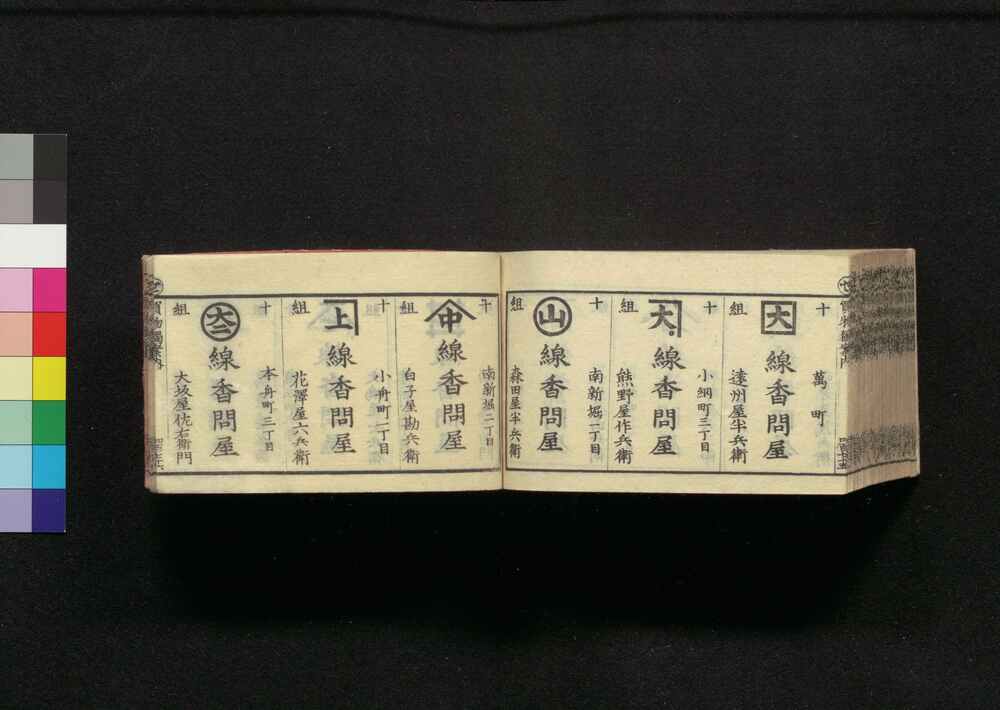 十
萬町
大
線香問屋
組
遠州屋半兵衛
十
小網町三丁目
大
線香問屋
組
熊野屋作兵衛
十
南新堀一丁目
山
線香問屋
組
森田屋半兵衛
十
南新堀二丁目
中
線香問屋
組
白子屋勘兵衛
十
小舟町一丁目
上
線香問屋
組
花澤屋六兵衛
十
本舟町三丁目
大二
線香問屋
組
大坂屋佐右衛門